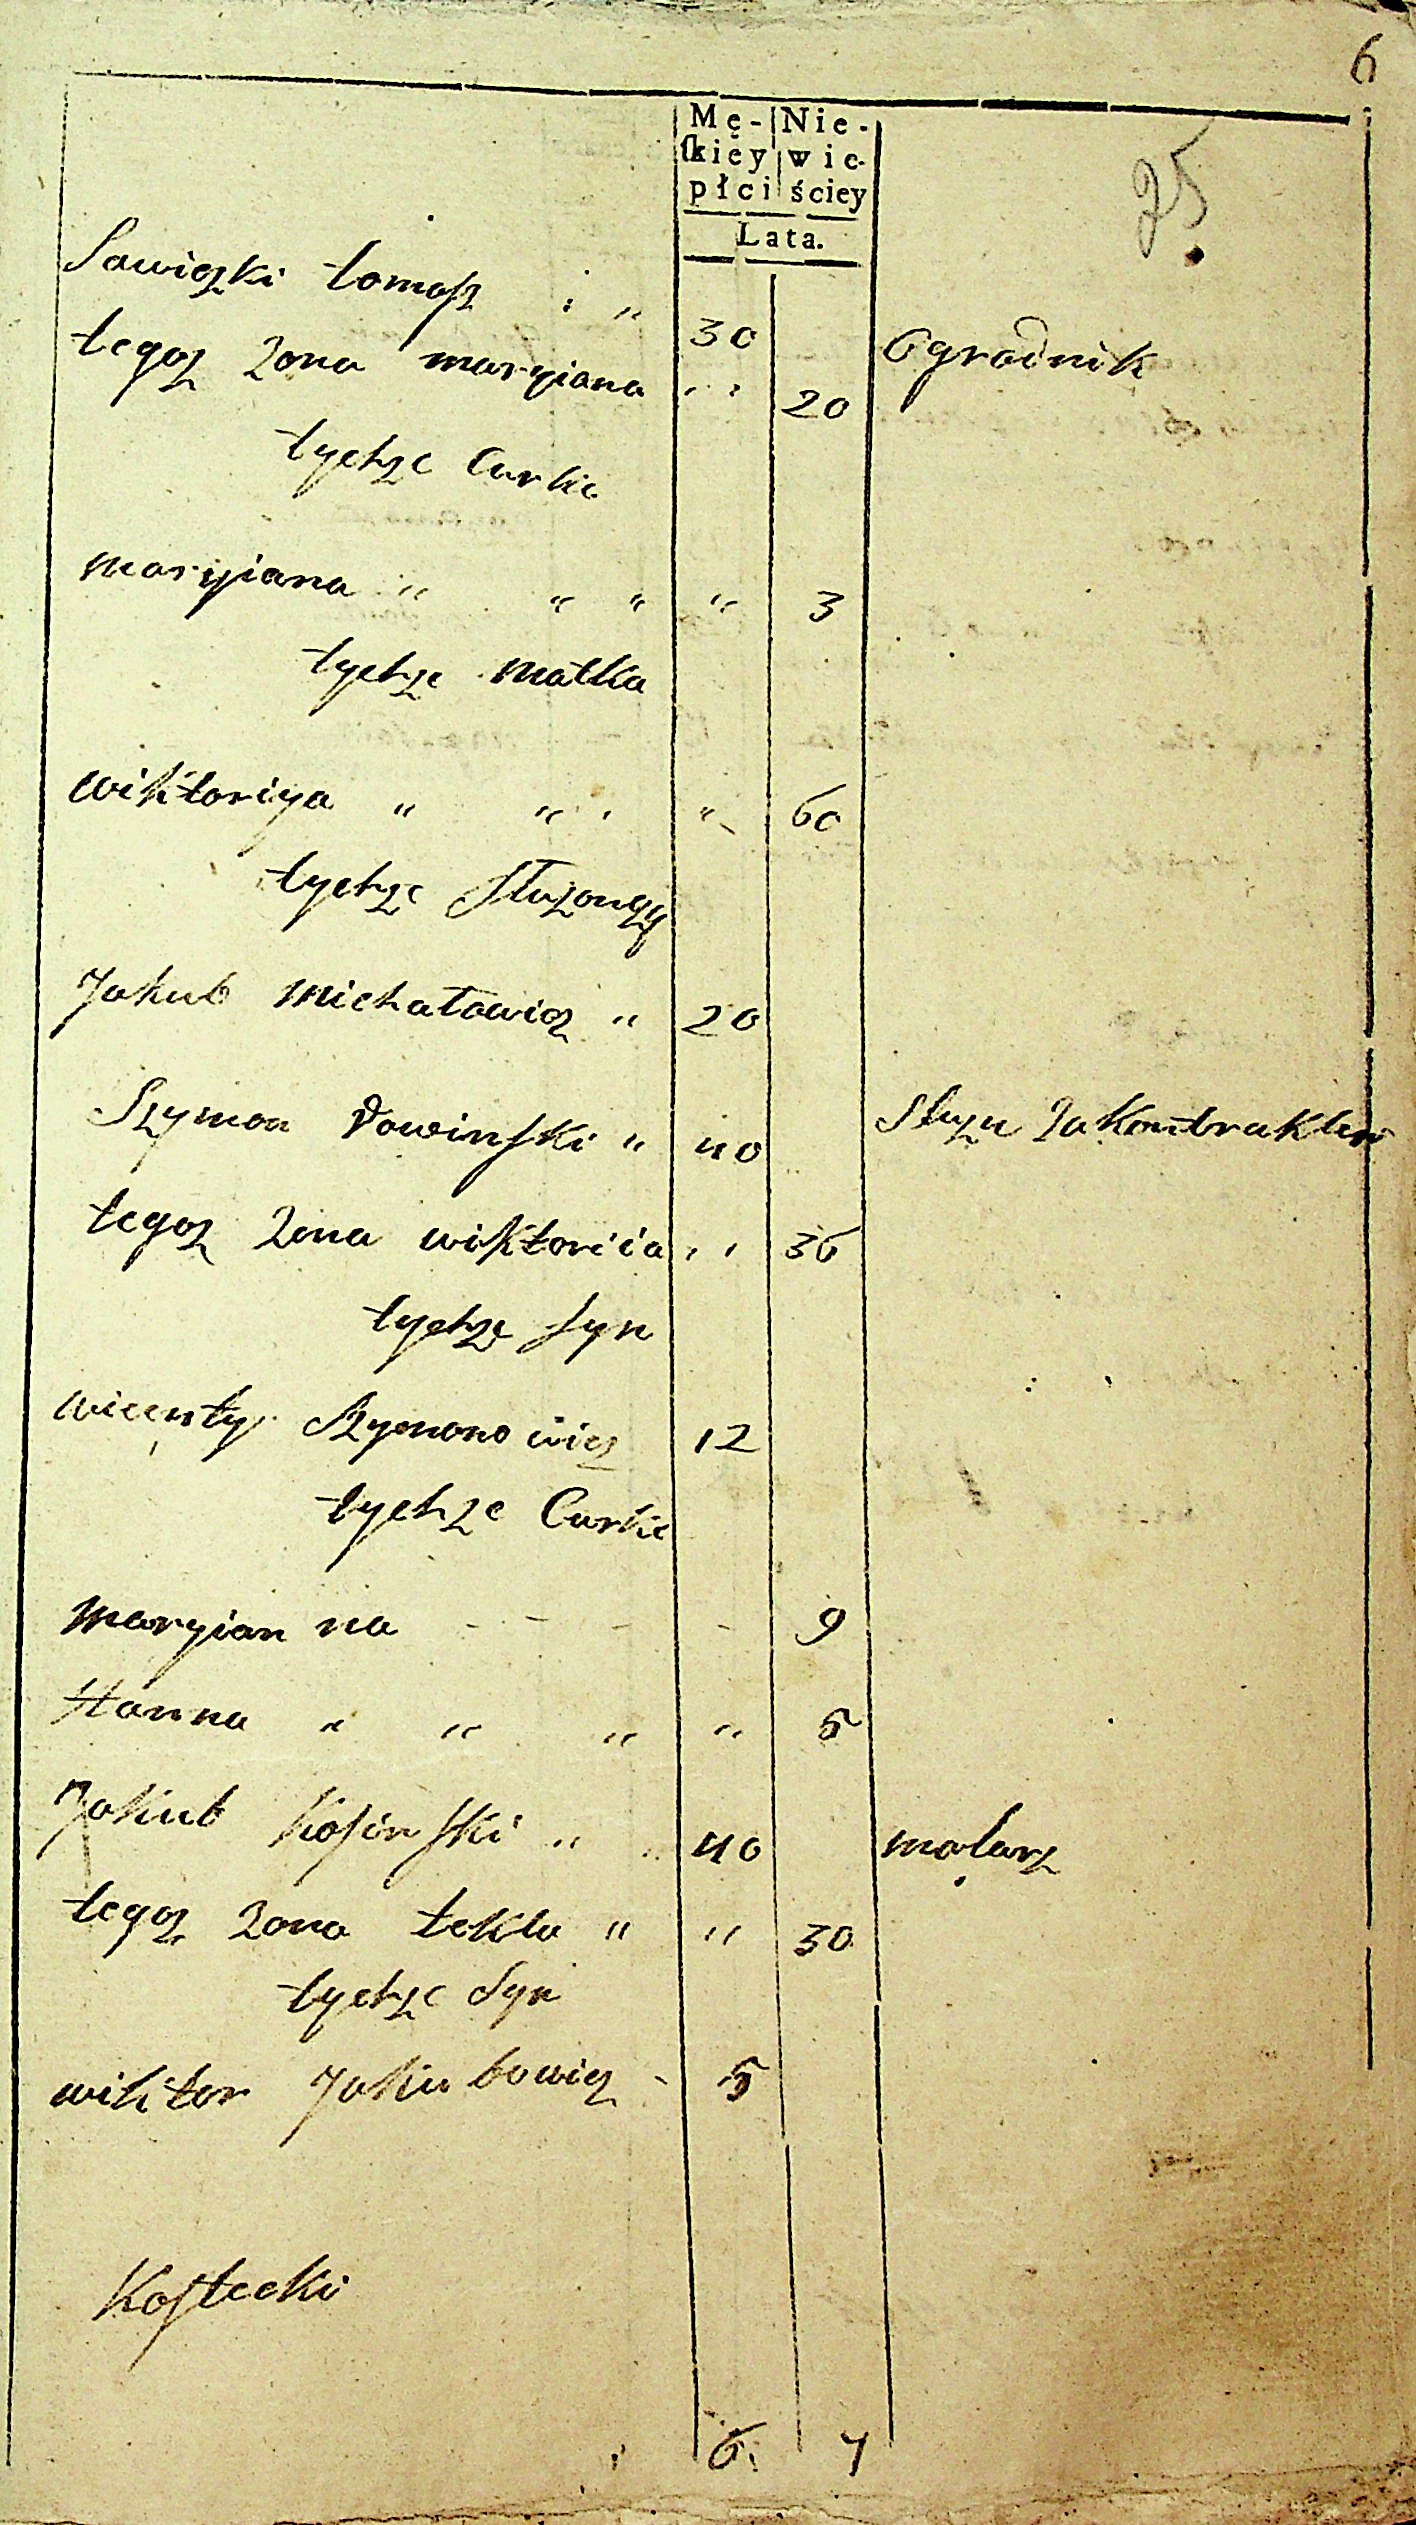 6
Mę- Nie-
ſkiey wie-
płci ściey
Lata.
75
Sawiczki tomaſz : „ 30 Ogrodnik
tegoz Zona maryiana „ 20
tychze Curke
maryiana „ „ „ „ 3
tychze Matka
wiktoriya „ „ „ 60
tychze Służoncy
Jakub Michałowicz „ 20
Szymon Dowinſki „ 40 Służy Za Kontraktem
tegoz Zona wiktoriia „ 36
tychze ſyn
wicenty Szymonowicz 12
tychze Curke
Maryianna - - - - 9
Hanna „ „ „ „ 5
Jakub Koſinſki „ 40 malarz
tegoz Zona tekla „ „ 30
tychze Syn
wiktor Jakubowicz - 5
Koſtecki
6. 7